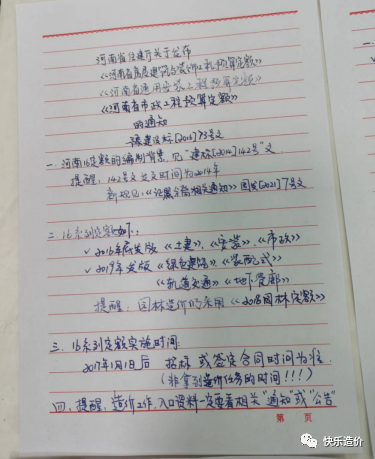 河南省住建厅关于发布
《河南省房屋建筑与装饰工程预算定额》
《河南省通用安装工程预算定额》
《河南省市政工程预算定额》
的通知
豫建设标[2016]73号文
一、河南16定额的编制背景 见"建标[2014]142号"文
提醒:142号文 发文时间为2014年
国发[2021]7号文
二、16系列定额如下:
✓ 2016年底发版《土建》、《安装》、《市政》
✓ 2019年发版《绿色建筑》《装配式》
《轨道交通》《地下管廊》
提醒:园林造价仍采用《2018园林定额》
三、16系列定额实施时间:
2017年1月1日后 招标 或签定合同时间为准
(非拿到造价任务的时间!!!)
四、提醒:造价工作,入口资料一定要看相关"通知"或"公告"
第 页
快乐造价